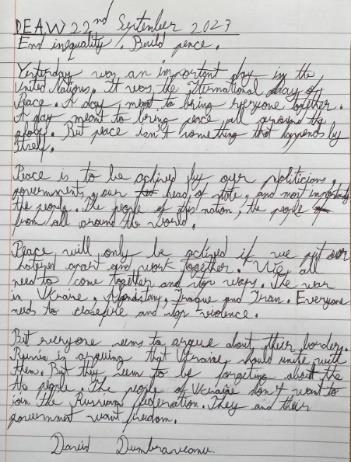 DEAW 22nd September 2023
End inequality. Build peace.
Yesterday was an important day in the
United Nations. It was the international day of
Peace. A day ment to bring everyone together.
A day meant to bring peace all around the
globe. But peace isn't something that happends by
itself.
Peace is to be achived by our politicians,
governments, our head of state, and most importantly
the people. The people of this nation, the people
from all around the world.
Peace will only be achived if we put our
hatered apart and work together. We all
need to come together and stop wars. The war
in Ukraine, Afganistan, Iraque and Iran. Everyone
needs to ceasefire and stop violence.
But everyone seems to argue about their borders.
Russia is arguing that Ukraine should unite with
them. But they seem to be forgeting about the
people. The people of Ukraine don't want to
join the Russian federation. They and their
government want freedom.
David Dumbraveanu